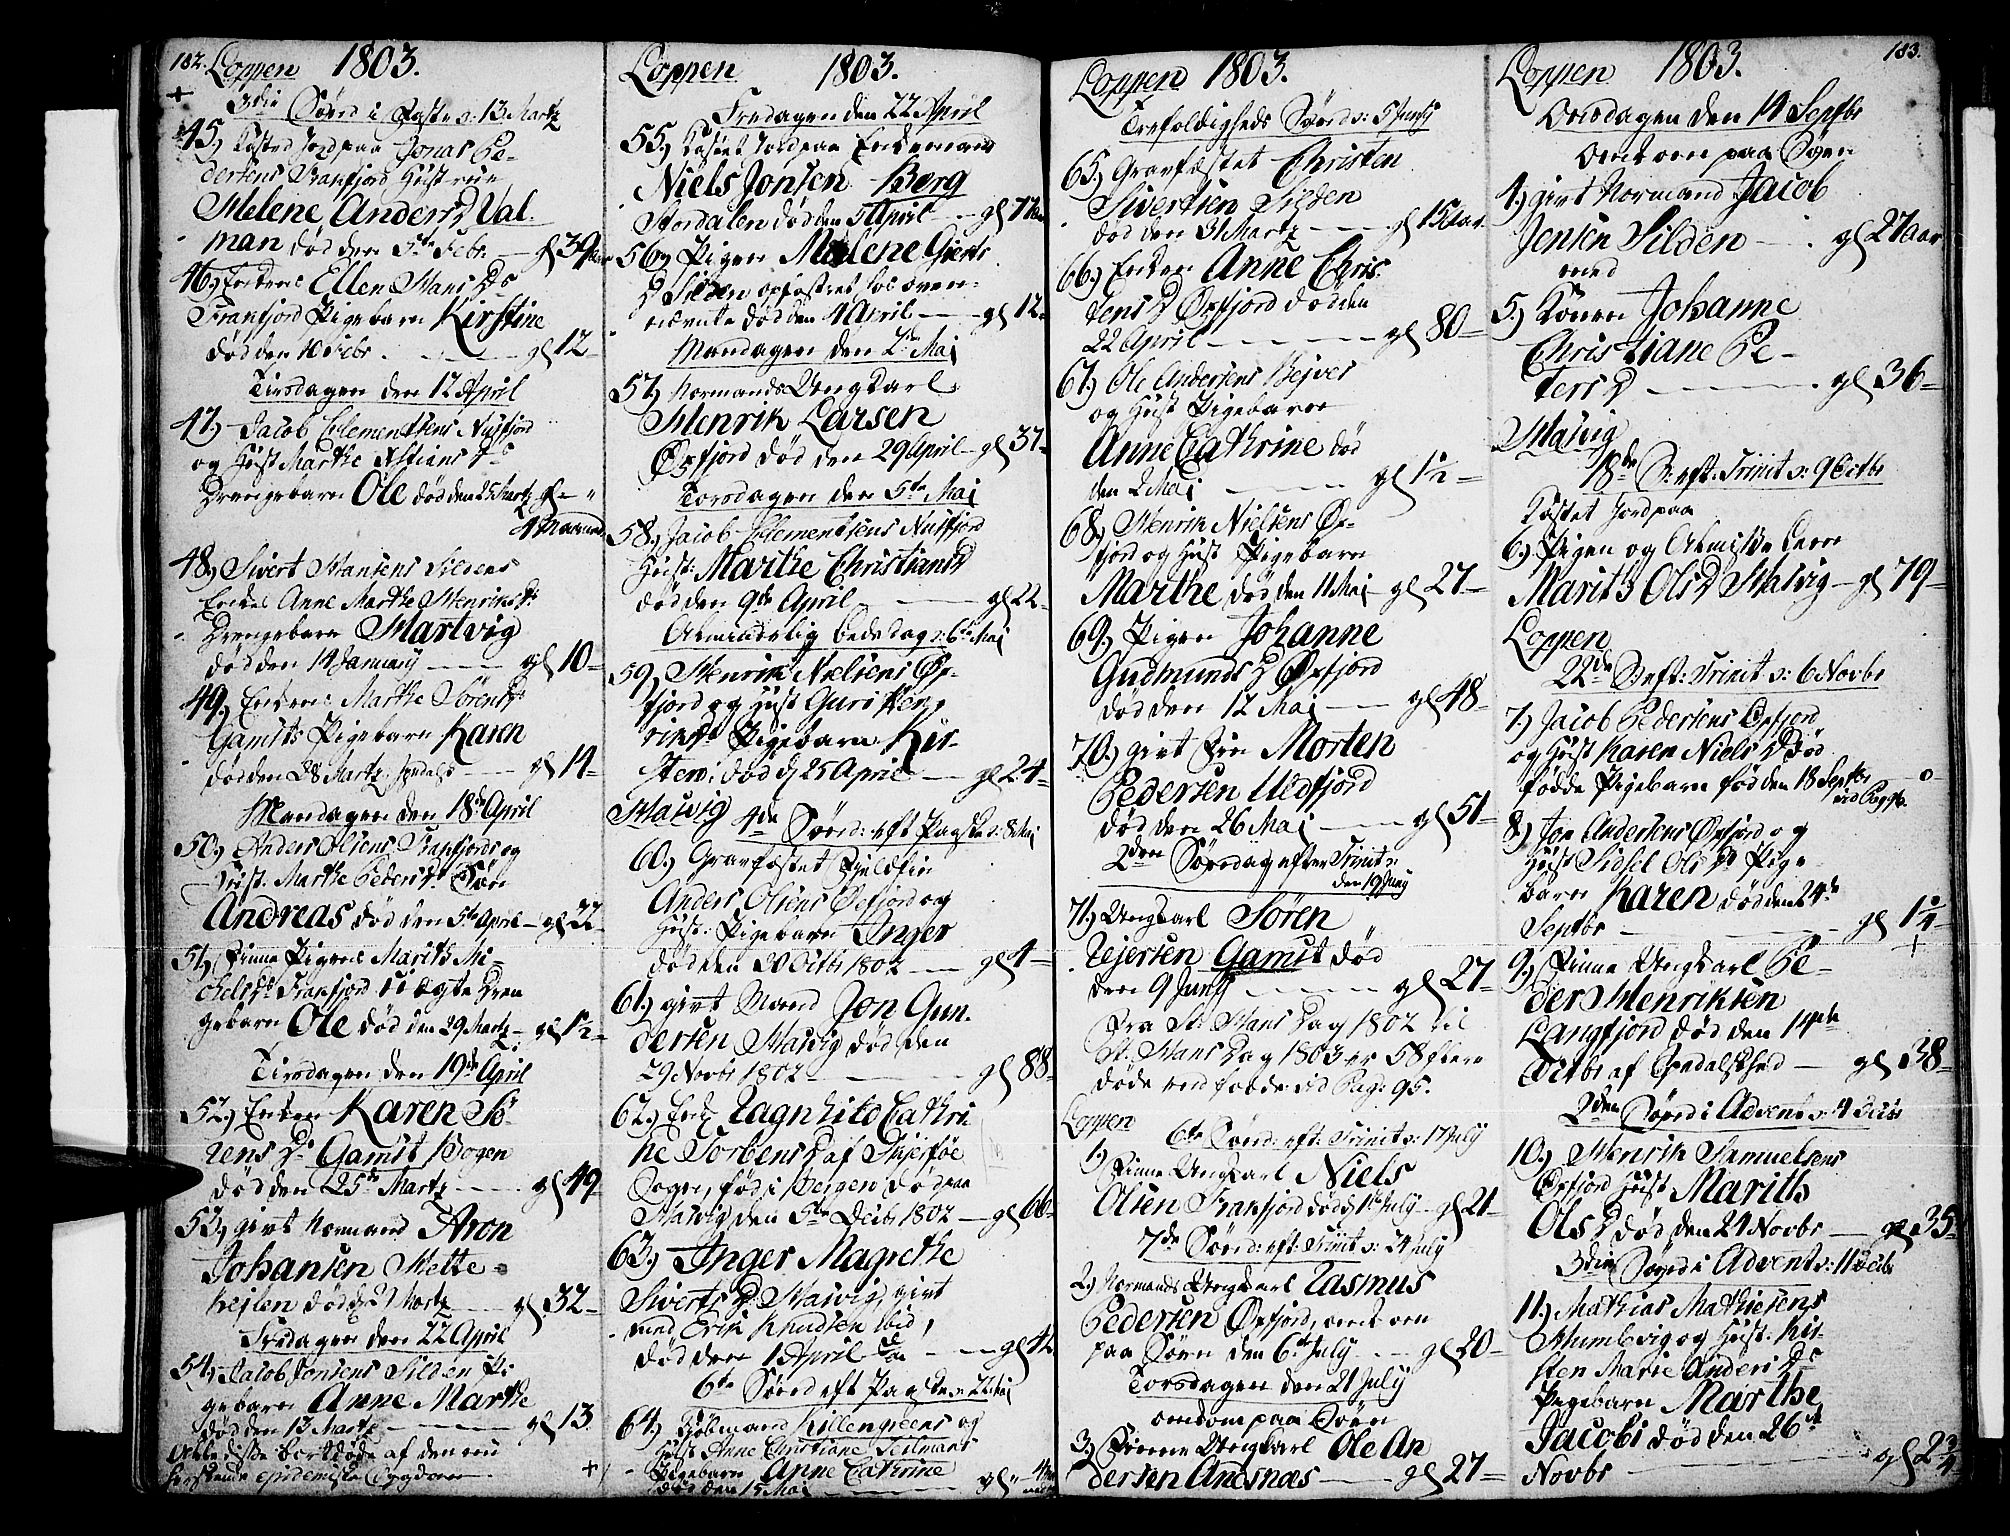 182. Loppen 1803.
3die Sønd i Faste d: 13 Martz
45, Kasted Jord paa Jonas Pe-
dersens Tranfjord Hust rue,
Helene AndersD Hal-
man død den 5te Febr. gl 39 aar
46, Enken Ellen HansDs
Tranfjord Pigebarn Kirstine
død den 10 Febr. gl 12-
Tirsdagen den 12 April
47, Jacob Clementsens Nusfjord
og Hust Marthe
Drengebarn Ole død den 25 Martz gl -
4 Maaned
48, Sivert Hansens Sildens
Enkes Anne Marthe Henriks Ds
Drengebarn Hartvig
død den 14 January gl 10-
49, Enkens Marthe Sørens Ds
Gamsts Pigebarn Karen
død den 28 Martz gl 14-
Mandagen den 18de April
50, Anders Olsens Tranfjords og
Hust. Marthe Peders Ds Søn
Andreas død den 5te April - gl 22-
51, Finne Pigens Marith Mi-
chels Ds Tranfjord uægte Dren
gebarn Ole død den 29 Martz - gl 1½-
Tirsdagen den 19de April
52, Enken Karen Sø-
rens Ds Gamst Bogen
død den 25de Martz gl 49
53, givt Normand Aron
Johansen Mette-
hejlen død d 21 Martz gl 32-
Fredagen den 22 April
54, Jacob Jonsens Silden Pi
gebarn Anne Marthe
død den 13 Martz gl 13.
Alle disse bortdøde af den om
epidemiske Sygdom
Loppen 1803.
Fredagen den 22 April
55, Kastet Jord paa Enkemand
Niels Jonsen Berg
Stordalen død den 5 April gl 71 aar
56, Pigen Malene Gierts
D Silden opfostret hos oven-
nævnte død den 4 April gl 12-
Mandagen den 2de Maj
57, Normands Ungkarl
Henrik Larsen
Øxfjord død den 29 April - gl 37-
Torsdagen den 5te Maj
58, Jacob Clementsens Nusfjord
Hust: Marthe ChristiansD
død den 9de April gl 22-
Almindelig bededag d: 6te Maj
59, Henrik Nielsens Øx-
fjord og Hust Guri Hen,
riksDs Pigebarn Kir-
sten, død d 25 April gl 24-
Hasvig 4de Sønd: eft Paaske d: 8 Maj
60, Gravfæstet Fieldfin
Anders Olsens Øxfjord og
Hust: Pigebarn Inger
død den 30 Octbr 1802 gl 4-
61, givt Mand Jon Gun-
dersen Hasvig død den
29 Novbr 1802 gl 88-
62, Enke Ragnhild Cathri-
ne Torbens D af Skjerføe
Sogn, fød i Bergen død paa
Hasvig den 5te Decbr 1802 - gl 66-
63, Inger Magrethe
Siverts D Hasvig, givt
med Erik Knudsen ibid,
død den 1 April gl 42
6te Sønd eft Paaske d. 22 Maj
64, Kjøbmand Killengreens og
Hust Anne Christiane Feilmans
Pigebarn Anne Cathrine
død den 15 Maj gl " 4 Maa
neder
Loppen 1803.
Trefoldigheds Sønd d: 5 Juny
65, Gravfæstet Christen
Sivertsen Silden
død den 31 Martz gl 15 aar.
66, Enken Anne Chris-
tensD Øxfjord død den
22 April gl 80-
67, Ole Andersens Bejver
og Hust Pigebarn
Anne Cathrine død
den 2 Maj gl 1½-
68, Henrik Nielsens Øx-
fjord og Hust Pigebarn
Marthe død den 11 Maj - gl 27-
69, Pigen Johanne
Gudmunds D Øxfjord
død den 12 Maj gl 48-
70, givt Fin Morten
Pedersen Uldfjord
død den 26 Maj gl 51-
2den Søndag efter Trinit d:
den 19 Juny
71, Ungkarl Søren
Rejersen Gamst død
den 9 Juny gl 27-
Fra St. Hans Dag 1802 til
St. Hans Dag 1803 er 58 flere
døde end fødde vid Pag: 95.
Loppen 6te Sønd: eft: Trinit d: 17 July
1, Finne Ungkarl Niels
Olsen Tranfjord død d 1te July - gl 21-
7de Sønd: eft: Trinit d: 24 July
2, Normands Ungkarl Rasmus
Pedersen Øxfjord, omkom
paa Søen den 6te July gl 20-
Torsdagen den 21 July
omkom paa Søen
3, Finne Ungkarl Ole An
dersen Andsnæs gl 27-
Loppen 1803. 183.
Onsdagen den 14 Septbr
omkom paa Søen
4, givt Normand Jacob
Jensen Silden gl 27 aar
med
5, Konen Johanne
Christiane Pe-
tersD gl 36-
Hasvig
18de S: eft: Trinit d: 9 Octbr
Kastet Jord paa
6, Pigen og Almisse lem
Marith OlsD Hasvig - gl 79-
Loppen
22de S eft: Trinit d: 6 Novbr
7, Jacob Pedersens Øxfjord
og Hust Karen NielsD død
fødde Pigebarn fød den 18 Septbr - 0
vid Pag 76.
8, Jon Andersens Øxfjord og
Hust Sidsel OlsDs Pige-
barn Karen død den 24de
Septbr gl 1¼
9, Finne Ungkarl Pe-
der Henriksen
Langfjord død den 14de
Octbr af Spedalskhed gl 38-
2den Sønd i Advent d: 4 Decbr
10, Henrik Samuelsens
Øxfjord Hust Marith
Ols D død den 21 Novbr gl 35-
3die Sønd i Advent d: 11 Decbr
11, Mathias Mathiesens
Skumbvig og Hust: Kir-
sten Marie Anders Ds
Pigebarn Marthe
Jacobi død den 26de
Novbr gl 2¾